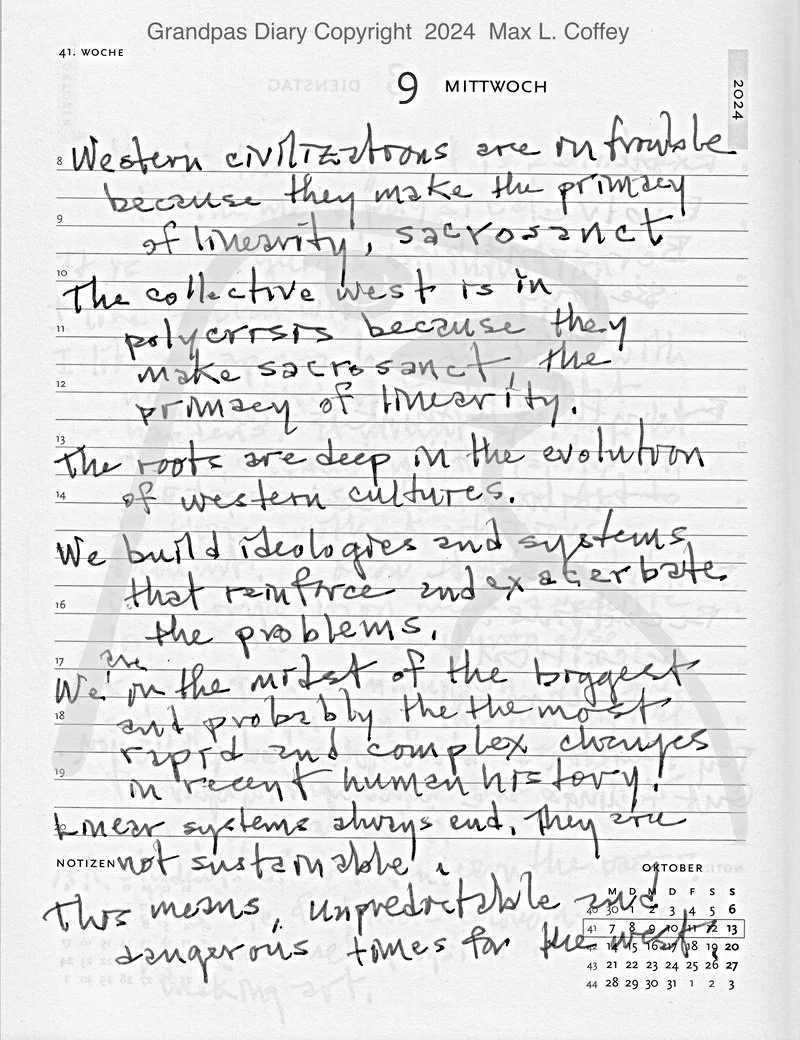 Grandpas Diary Copyright 2024 Max L. Coffey
41. WOCHE
9 MITTWOCH
2024
8 Western civilizations are in trouble
because they make the primacy
9
of linearity, sacrosanct
10
The collective west is in
11 polycrisis because they
make sacrosanct, the
12
primacy of linearity.
13
The roots are deep in the evolution
14 of western cultures.
We build ideologies and systems,
that reinforce and exacerbate
16
the problems.
17 are
We in the midst of the biggest
18 and probably the the most
rapid and complex changes
19
in recent human history!
Linear systems always end. They are
NOTIZEN not sustainable.
This means, unpredictable and
dangerous times for the west.
OKTOBER
M D M D F S S
40 30 1 2 3 4 5 6
41 7 8 9 10 11 12 13
42 14 15 16 17 18 19 20
43 21 22 23 24 25 26 27
44 28 29 30 31 1 2 3